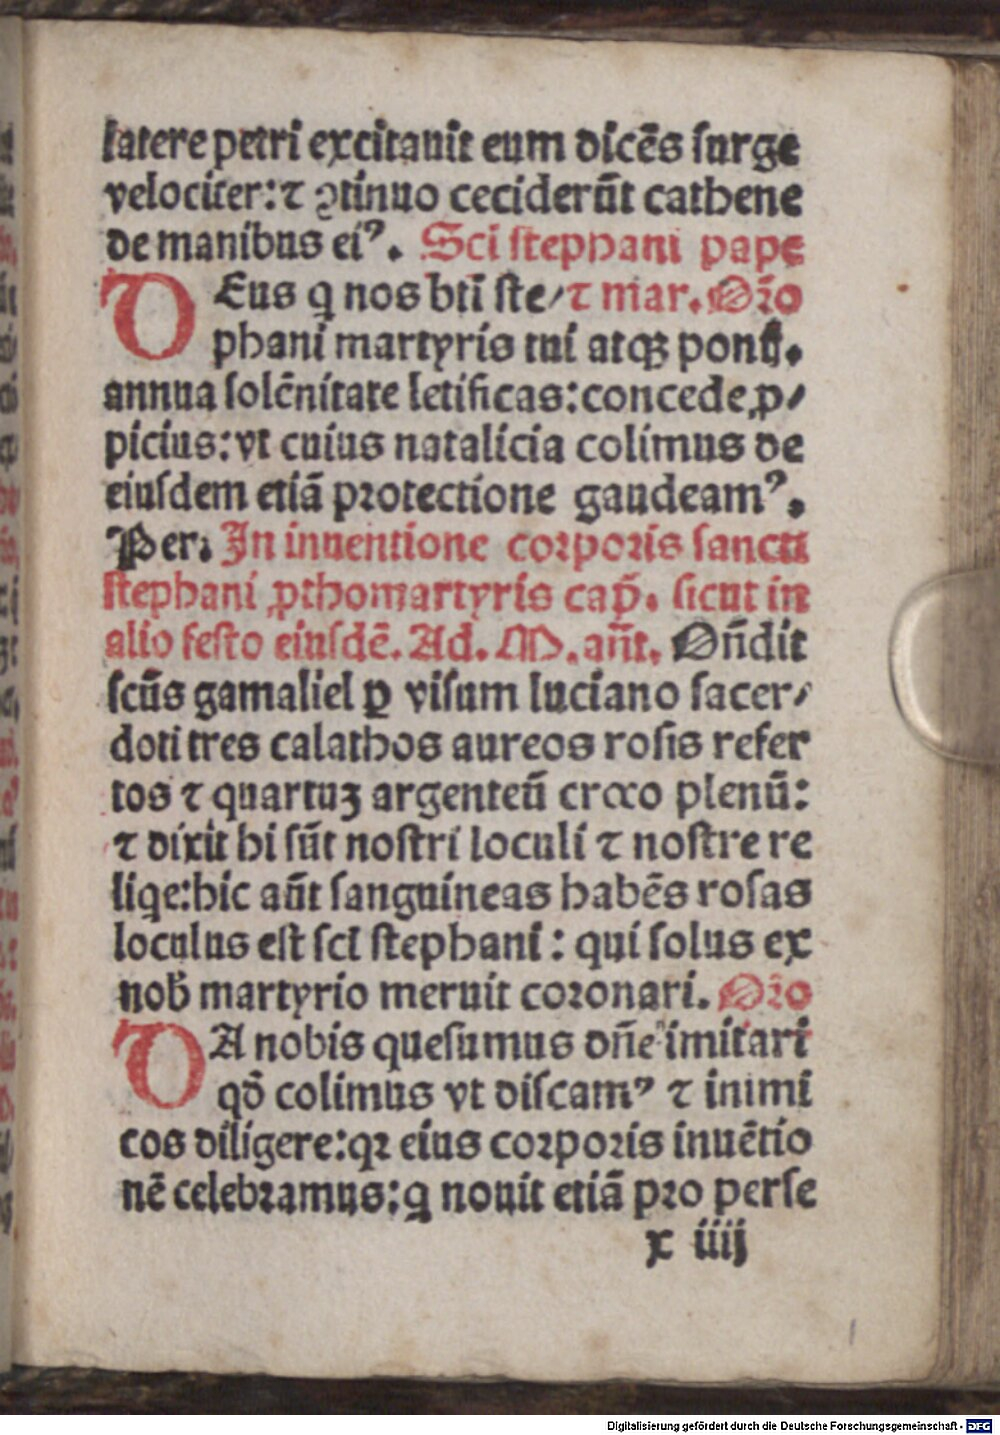 latere petri excitauit eum dicēs surge
velociter: ⁊ ꝯtinuo ceciderūt cathene
de manibus eiꝰ. Sci stephani pape
DEus q̇ nos bti̅ ste/ ⁊ mar. Or̄o
phani martyris tui atqꝫ pontį̄.
annua solēnitate letificas: concede ꝓ/
picius: vt cuius natalicia colimus de
eiusdem etiā protectione gaudeamꝰ.
Per. In inuentione corporis sancti
stephani ꝓthomartyris cap̄. sicut in
alio festo eiusdē. Ad. M. añt. Oñdit
scūs gamaliel ꝑ visum luciano sacer/
doti tres calathos aureos rosis refer
tos ⁊ quartuꝫ argenteū croco plenū:
⁊ dixit hi sūt nostri loculi ⁊ nostre re
liqe: hic aūt sanguineas habēs rosas
loculus est sci̅ stephani: qui solus ex
nob̄ martyrio meruit coronari. Or̄o
DA nobis quesumus dñe imitari
qd̄ colimus vt discamꝰ ⁊ inimi
cos diligere: qꝛ eius corporis inuētio
nē celebramus: q̇ nouit etiā pro perse
x iiij
Digitalisierung gefördert durch die Deutsche Forschungsgemeinschaft - DFG